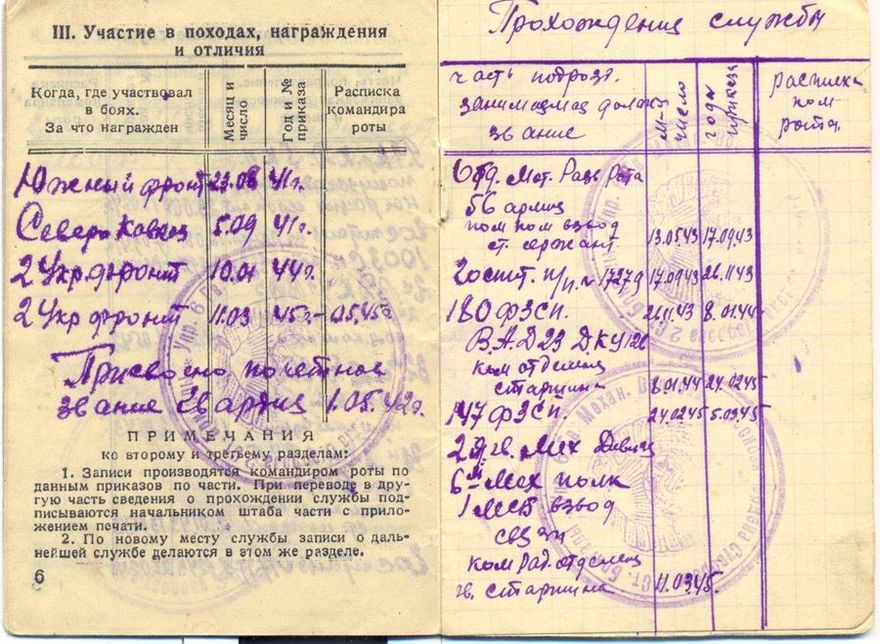 III. Участие в походах, награждения
и отличия
Когда, где участвовал
в боях.
За что награжден
Месяц и
число
Год и №
приказа
Расписка
командира
роты
Южный фронт 23.08 41г.
Северо Кавказ 5.09 41г.
2 Укр фронт 10.01 44г.
2 Укр фронт 11.03 45г.- 05.45г
Присвоено почетное
звание Гвардиц 1.05.42г.
ПРИМЕЧАНИЯ
ко второму и третьему разделам:
1. Записи производятся командиром роты по
данным приказов по части. При переводе в дру-
гую часть сведения о прохождении службы под-
писываются начальником штаба части с прило-
жением печати.
2. По новому месту службы записи о даль-
нейшей службе делаются в этом же разделе.
6
Прохождение службы
часть подразд.
занимаемая должн
звание
м-ц
число
годы
приказа
расписка
ком
рота.
6 отд. Мот. Разв Рота
56 армии
пом ком взвод
ст. сержант 13.05.43 17.09.43
2 п/п. 17.09.43 26.11.43
180 ФЗСП. 21.11.43 8.01.44
ком отделен
старшина 8.01.44 24.02.45
147 ФЗСП. 24.02.45 5.03.45
2я гв. Мех Дивиз
6й Мех полк
1 МСБ взвод
связи
ком рад. отделен
гв. старшина 11.03.45.